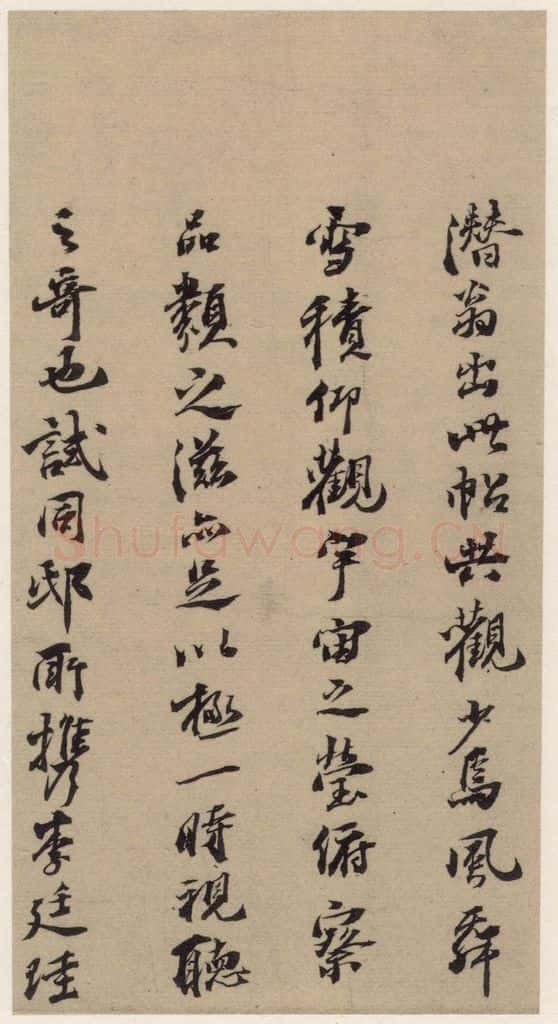 潛翁出此帖共觀少焉風舞
雪積仰觀宇宙之瑩俯察
品類之滋亦足以極一時視聽
之奇也試同邸所攜李廷珪
shufawang.CN